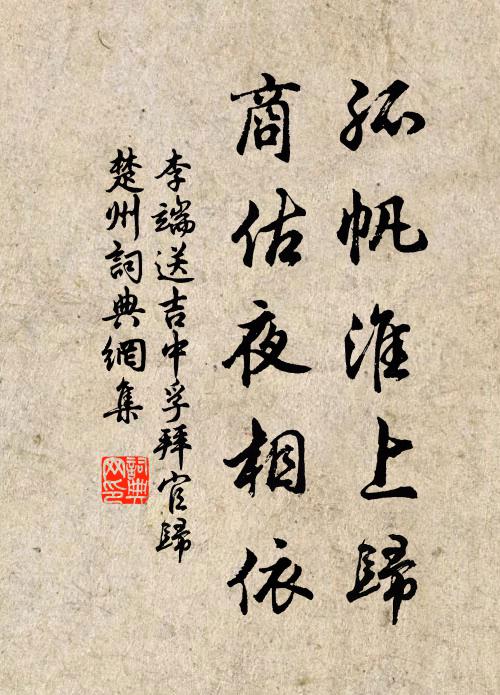 孤帆淮上歸
商估夜相依
李端送吉中孚拜官歸
楚州詞典網集
詞典網印